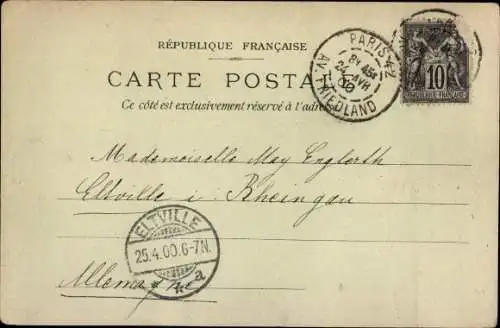 RÉPUBLIQUE FRANÇAISE
CARTE POSTALE
Ce côté est exclusivement réservé à l'adresse
PARIS 42
24 AVR
00
AV. FRIEDLAND
10
RÉPUBLIQUE FRANÇAISE
Mademoiselle May Englerth
Eltville i Rheingau
ELTVILLE
25.4.00.6-7N.
* a
Allemagne